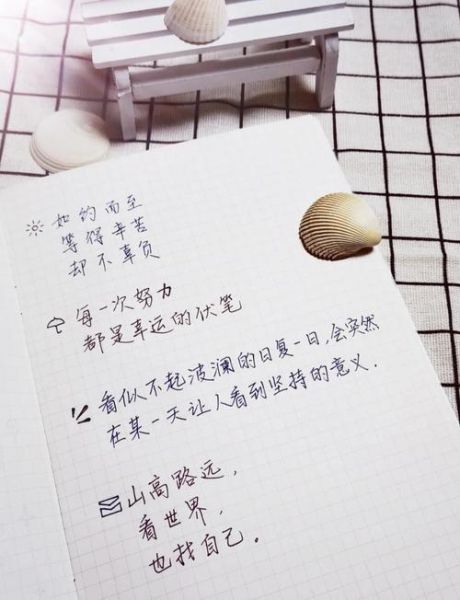 如约而至
等得辛苦
却不辜负
每一次努力
都是幸运的伏笔
看似不起波澜的日复一日,会突然
在某一天让人看到坚持的意义.
山高路远,
看世界,
也找自己.